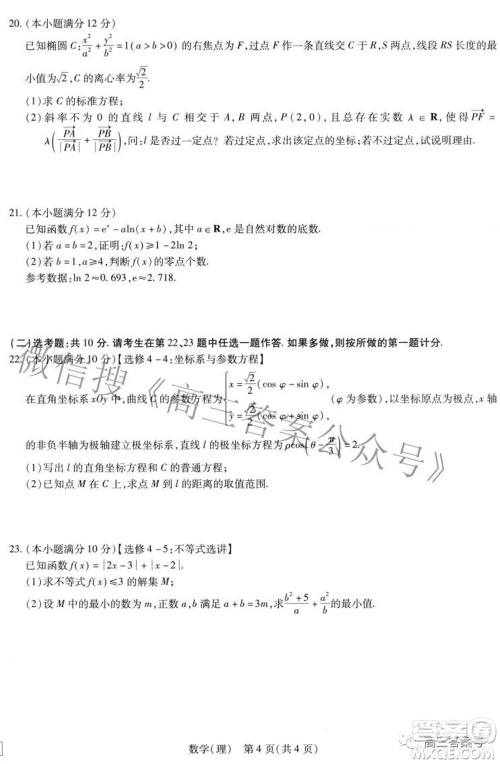 20. (本小题满分 12 分)
已知椭圆 C: x²/a² + y²/b² = 1(a>b>0) 的右焦点为 F,过点 F 作一条直线交 C 于 R,S 两点,线段 RS 长度的最
小值为√2, C 的离心率为 √2/2.
(1)求 C 的标准方程;
(2)斜率不为 0 的直线 l 与 C 相交于 A,B 两点,P(2,0),且总存在实数 λ∈R,使得 PF→ =
λ(PA→/|PA→| + PB→/|PB→|),问:l 是否过一定点?若过定点,求出该定点的坐标;若不过定点,试说明理由.
21. (本小题满分 12 分)
已知函数 f(x)=eˣ-aln(x+b),其中 a∈R,e 是自然对数的底数.
(1)若 a=b=2,证明:f(x)≥1-2ln2;
(2)若 b=1,a≥4,讨论 f(x)的零点个数.
参考数据:ln2≈0.693,e≈2.718.
(二)选考题:共 10 分.请考生在第 22、23 题中任选一题作答.如果多做,则按所做的第一题计分.
22. (本小题满分 10 分)【选修 4-4:坐标系与参数方程】
在直角坐标系 xOy 中,曲线 C 的参数方程为 { x=√2/2(cos φ-sin φ), y=√2/2(cos φ+sin φ) (φ 为参数),以坐标原点为极点,x 轴
的非负半轴为极轴建立极坐标系,直线 l 的极坐标方程为 ρcos(θ-π/3)=2.
(1)写出 l 的直角坐标方程和 C 的普通方程;
(2)已知点 M 在 C 上,求点 M 到 l 的距离的取值范围.
23. (本小题满分 10 分)【选修 4-5:不等式选讲】
已知函数 f(x)=|2x-3|+|x-2|.
(1)求不等式 f(x)≤3 的解集 M;
(2)设 M 中的最小的数为 m,正数 a,b 满足 a+b=3m,求 (b²+5)/a + a²/b 的最小值.
数学(理) 第 4 页(共 4 页)
微信搜《高三答案公众号》
高三答案号